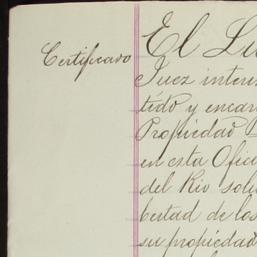 Certificado
El Li
Juez interi
tido y encar
Propiedad D
en esta Ofici
del Rio soli
bertad de los
su propiedad